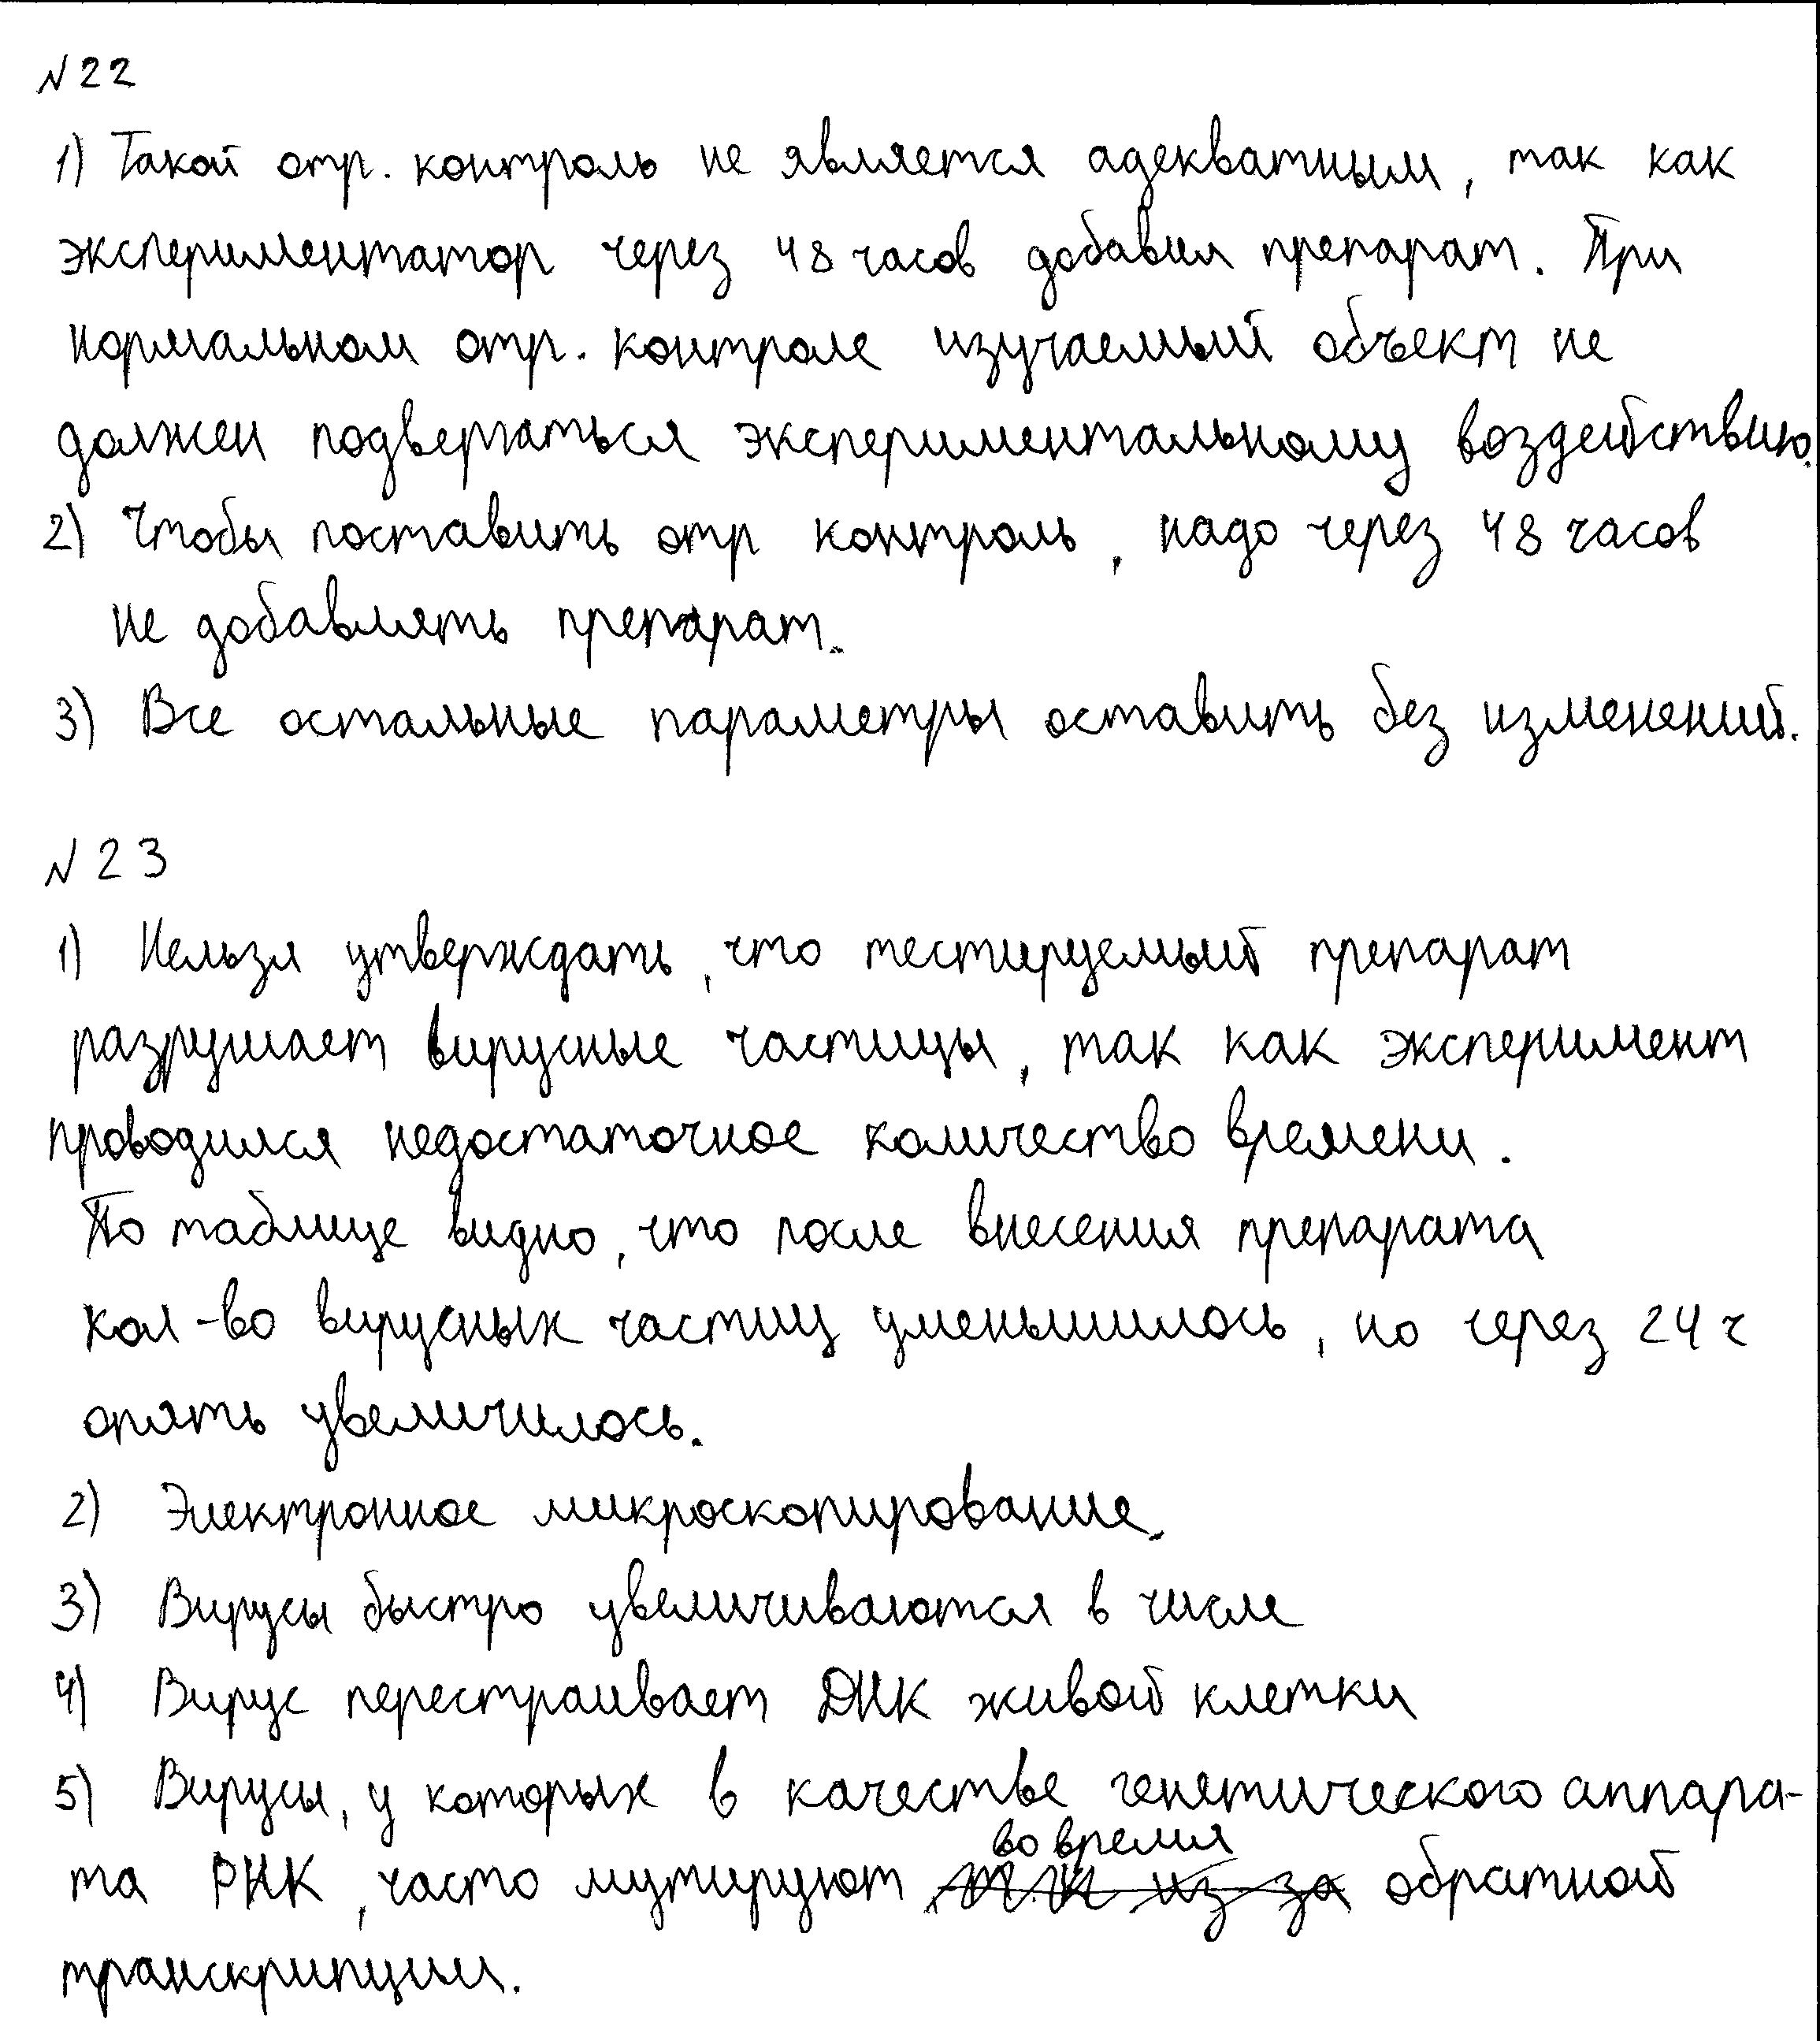 №22
1) Такой отр. контроль не является адекватным, так как
экспериментатор через 48 часов добавил препарат. При
нормальном отр. контроле изучаемый объект не
должен подвергаться экспериментальному воздействию.
2) Чтобы поставить отр контроль, надо через 48 часов
не добавлять препарат.
3) Все остальные параметры оставить без изменений.
№23
1) Нельзя утверждать, что тестируемый препарат
разрушает вирусные частицы, так как эксперимент
проводился недостаточное количество времени.
По таблице видно, что после внесения препарата
кол-во вирусных частиц уменьшилось, но через 24 ч
опять увеличилось.
2) Электронное микроскопирование.
3) Вирусы быстро увеличиваются в числе
4) Вирус перестраивает ДНК живой клетки
5) Вирусы, у которых в качестве генетического аппара-
во время
та РНК, часто мутируют из за обратной
транскрипции.